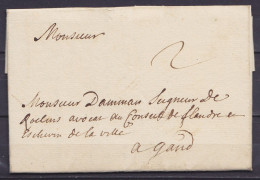 Monsieur
2
Monsieur Damman Seigneur de
avocat au Conseil de flandre et
Eschevin de la ville
a gand